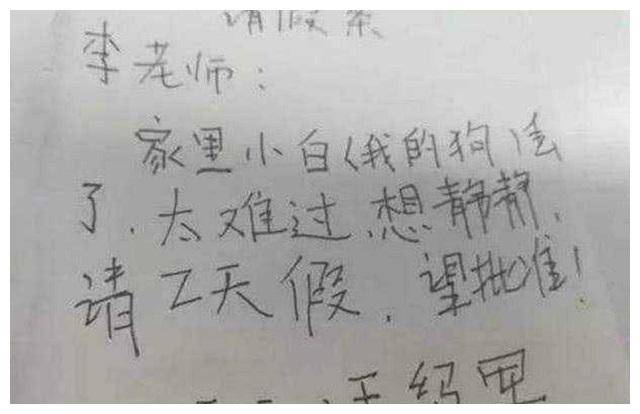 请假条
李老师：
家里小白（我的狗）丢
了，太难过，想静静，
请2天假，望批准！